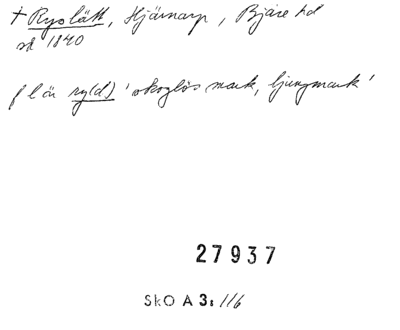 † Ryslätt, Hjärnarp, Bjäre hd
sk 1840
f l än ry(d) 'skoglös mark, ljungmark'
27937
SkO A 3: 116